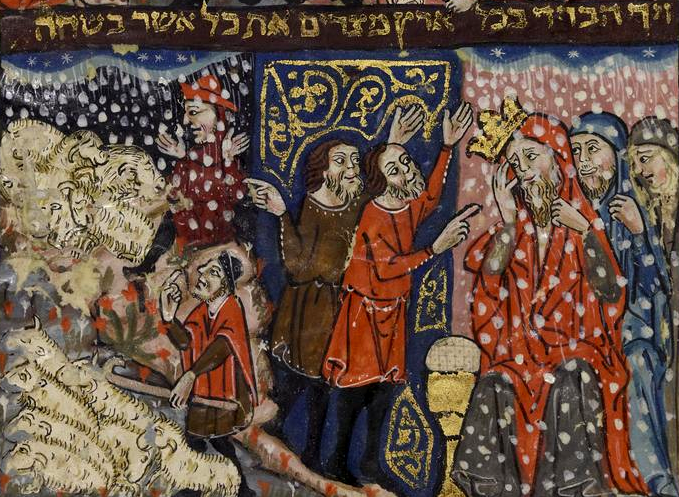 ויך הברד בכל ארץ מצרים את כל אשר בשדה